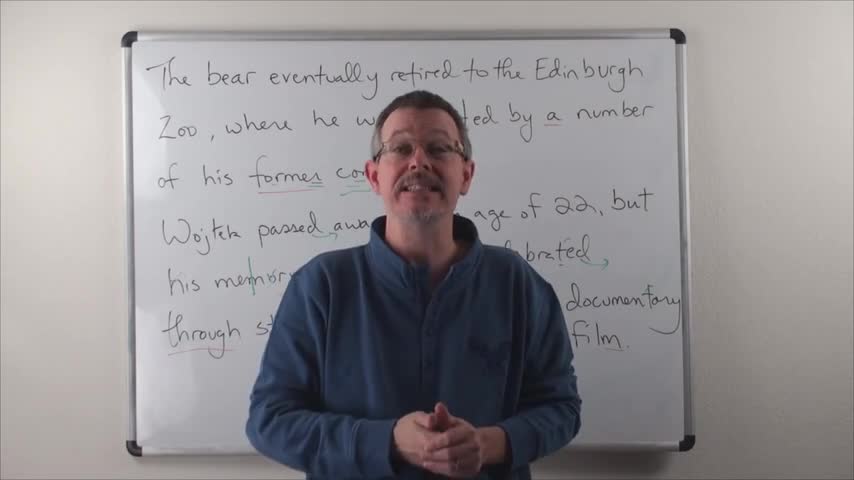 The bear eventually retired to the Edinburgh
Zoo, where he by a number
of his former
Wojtek passed age of 22, but
his
through documentary
film.